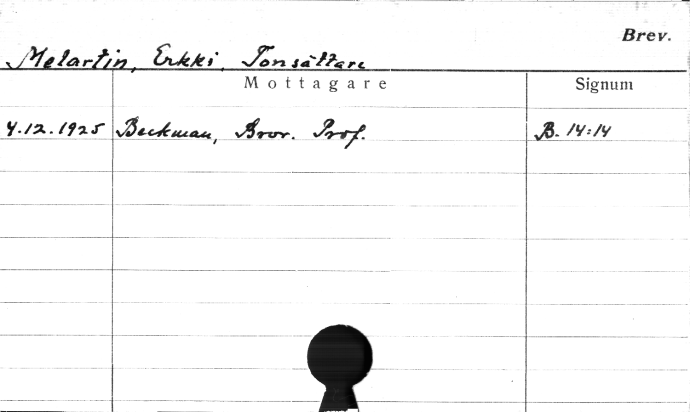 Brev.
Melartin, Erkki, Tonsättare
Mottagare Signum
4.12.1925 Beckman, Bror. Prof. B. 14:14